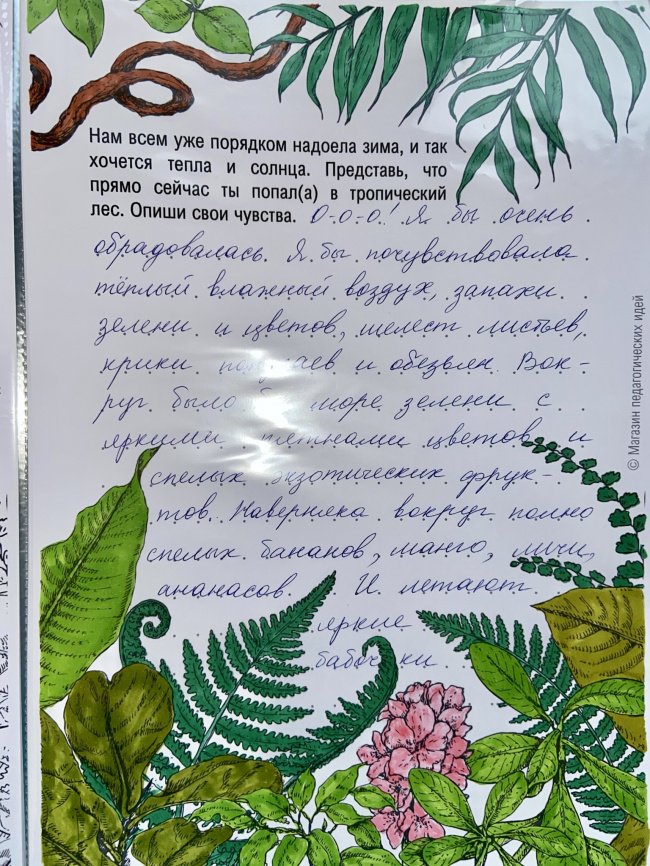 Нам всем уже порядком надоела зима, и так
хочется тепла и солнца. Представь, что
прямо сейчас ты попал(а) в тропический
лес. Опиши свои чувства. О-о-о! Я бы очень
обрадовалась. Я бы почувствовала
тёплый влажный воздух, запахи
зелени и цветов, шелест листьев,
крики попугаев и обезьян. Вок-
руг было море зелени с
яркими пятнами цветов и
спелых экзотических фрук-
тов. Наверняка вокруг полно
спелых бананов, манго, личи,
ананасов. И летают
яркие
бабочки
© Магазин педагогических идей